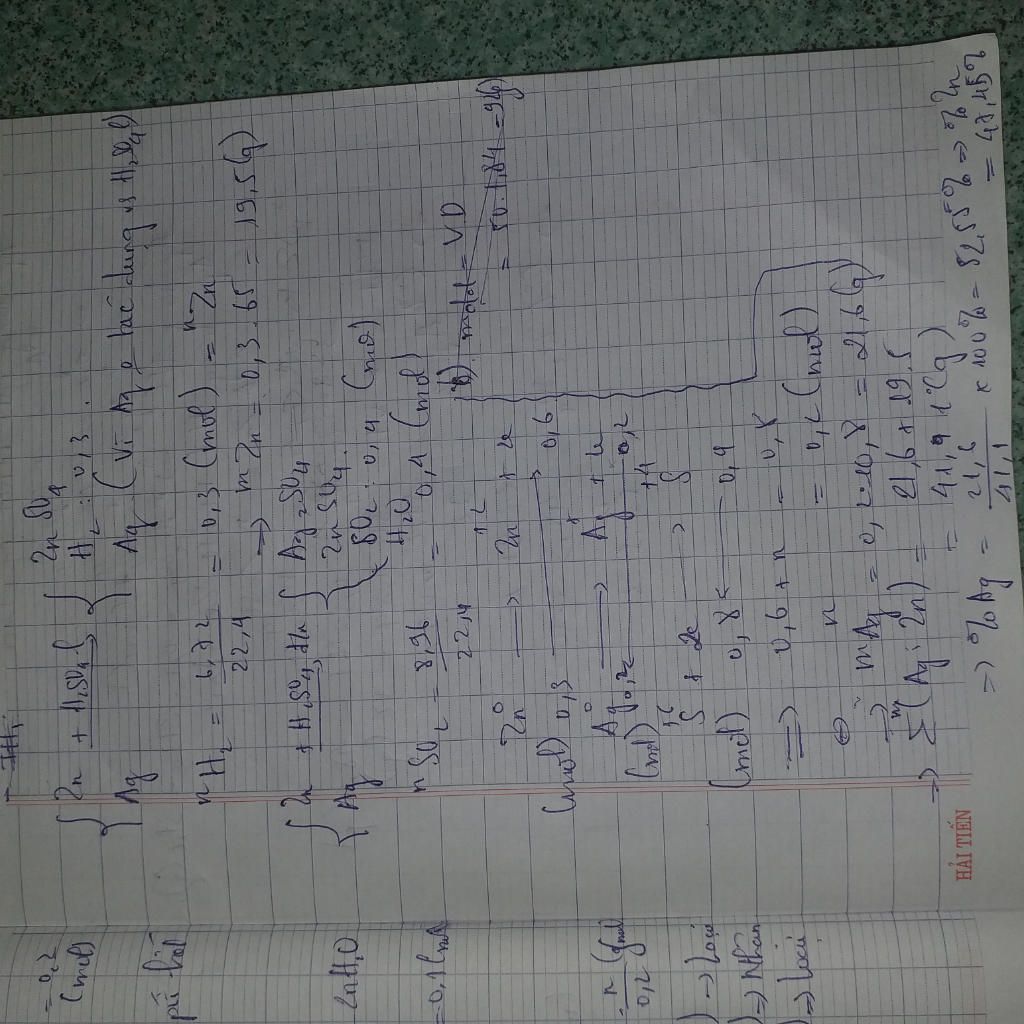 TH1:
{ Zn + H2SO4 l { ZnSO4
Ag H2 : 0,3.
Ag (Vì Ag o tác dụng vs H2SO4 l)
nH2 = 6,72 / 22,4 = 0,3 (mol) = nZn
=> mZn = 0,3 . 65 = 19,5 (g)
{ Zn + H2SO4, đn { Ag2SO4
Ag ZnSO4.
SO2 : 0,4 (mol)
H2O
nSO2 = 8,96 / 22,4 = 0,4 (mol)
b) mdd = V.D
= 50.1,84 = 92(g)
Zn0 -> Zn+2 + 2e
(mol) 0,3 -> 0,6
Ag0 -> Ag+ + 1e
(mol) 0,2 0,2
S+6 + 2e -> S+4
(mol) 0,8 <- 0,4
=> 0,6 + n = 0,8
n = 0,2 (mol)
⊕ mAg = 0,2.108 = 21,6 (g)
=> Σm (Ag; Zn) = 21,6 + 19,5
= 41,1 (g)
=> %Ag = 21,6 / 41,1 x 100% = 52,55% => %Zn
= 47,45%
HẢI TIẾN
= 0,2
(mol)
= 0,1 (mol)
n / 0,2
) -> Loại
) -> Nhận
) -> Loại